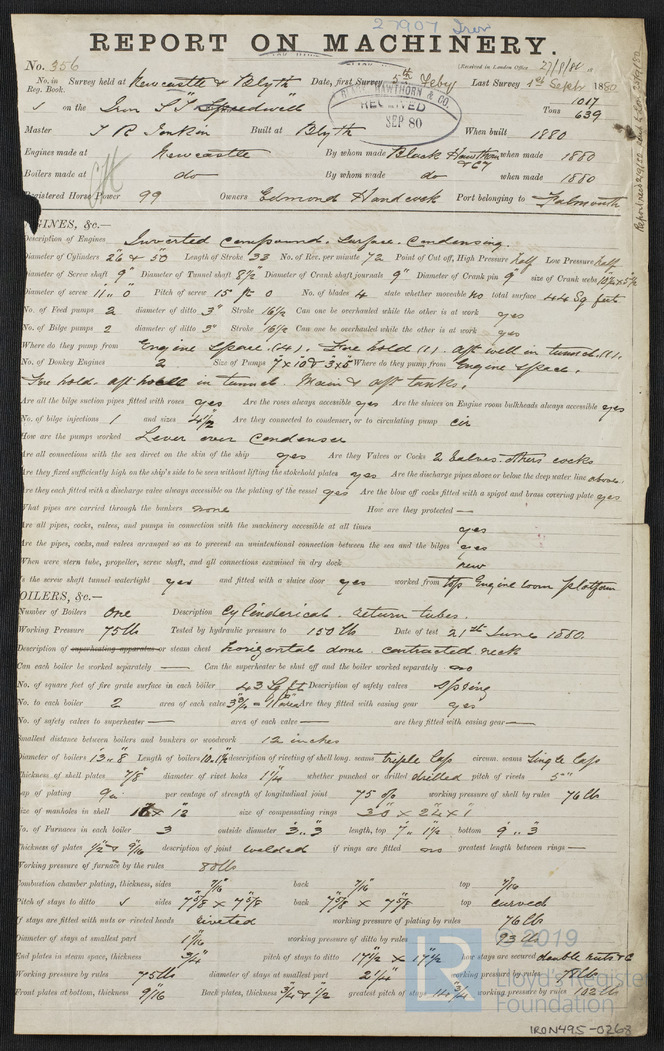 27907 Iron
REPORT ON MACHINERY.
No. 356 (Received in London Office 27/9/80
No. in Reg. Book. Survey held at Newcastle & Blyth Date, first Survey 5th Feby Last Survey 1st Septr 1880
on the Iron S.S. Speedwell Tons 1017 639
BLACK, HAWTHORN & CO RECEIVED SEP 80
Master T R Jenkin Built at Blyth When built 1880
Engines made at Newcastle By whom made Black Hawthorn & Co when made 1880
Boilers made at do By whom made do when made 1880
Registered Horse Power 99 Owners Edmond Handcock Port belonging to Falmouth
GINES, &c.—
Description of Engines Inverted compound. Surface. Condensing.
Diameter of Cylinders 26" & 50" Length of Stroke 33 No. of Rev. per minute 72 Point of Cut off, High Pressure half Low Pressure half
Diameter of Screw shaft 9" Diameter of Tunnel shaft 8½ Diameter of Crank shaft journals 9" Diameter of Crank pin 9" size of Crank webs
Diameter of screw 11" 0 Pitch of screw 15 ft 0 No. of blades 4 state whether moveable no total surface 44 Sq feet
No. of Feed pumps 2 diameter of ditto 3" Stroke 16½ Can one be overhauled while the other is at work yes
No. of Bilge pumps 2 diameter of ditto 3" Stroke 16½ Can one be overhauled while the other is at work yes
Where do they pump from Engine Space. (4). Fore hold (1). aft well in tunnel. (1).
No. of Donkey Engines 2 Size of Pumps 7 x 10 & 3 x 5 Where do they pump from Engine Space.
Fore hold. aft well in tunnel. Main & aft tanks.
Are all the bilge suction pipes fitted with roses yes Are the roses always accessible yes Are the sluices on Engine room bulkheads always accessible yes
No. of bilge injections 1 and sizes 4½ Are they connected to condenser, or to circulating pump cir
How are the pumps worked Lever over Condenser
Are all connections with the sea direct on the skin of the ship yes Are they Valves or Cocks 2 Valves. others cocks
Are they fixed sufficiently high on the ship's side to be seen without lifting the stokehold plates yes Are the discharge pipes above or below the deep water line above.
Are they each fitted with a discharge valve always accessible on the plating of the vessel yes Are the blow off cocks fitted with a spigot and brass covering plate yes
What pipes are carried through the bunkers none How are they protected —
Are all pipes, cocks, valves, and pumps in connection with the machinery accessible at all times yes
Are the pipes, cocks, and valves arranged so as to prevent an unintentional connection between the sea and the bilges yes
When were stern tube, propeller, screw shaft, and all connections examined in dry dock new
Is the screw shaft tunnel watertight yes and fitted with a sluice door yes worked from top Engine Room platform
OILERS, &c.—
Number of Boilers One Description Cylinderical. return tubes.
Working Pressure 75 lb Tested by hydraulic pressure to 150 lb Date of test 21st June 1880.
Description of superheating apparatus or steam chest horizontal dome. contracted neck
Can each boiler be worked separately — Can the superheater be shut off and the boiler worked separately no
No. of square feet of fire grate surface in each boiler 43 Sq ft Description of safety valves Spring
No. to each boiler 2 area of each valve Are they fitted with easing gear yes
No. of safety valves to superheater — area of each valve — are they fitted with easing gear —
Smallest distance between boilers and bunkers or woodwork 12 inches
Diameter of boilers 13" 8 Length of boilers description of riveting of shell long. seams triple lap circum. seams Single lap
Thickness of shell plates 7/8 diameter of rivet holes 1¼ whether punched or drilled drilled pitch of rivets 5"
Lap of plating 9" per centage of strength of longitudinal joint 75 % working pressure of shell by rules 76 lb
Size of manholes in shell 16 x 12 size of compensating rings
No. of Furnaces in each boiler 3 outside diameter 3" 3 length, top 7" 1½ bottom 9" 3
Thickness of plates ½ & 9/16 description of joint welded if rings are fitted no greatest length between rings —
Working pressure of furnace by the rules 80 lbs
Combustion chamber plating, thickness, sides 7/16 back 7/16 top 7/16
Pitch of stays to ditto sides 7⅝ x 7⅝ back 7⅝ x 7⅝ top curved
If stays are fitted with nuts or riveted heads riveted working pressure of plating by rules 76 lb
Diameter of stays at smallest part 1 1/16 working pressure of ditto by rules 93 lb
End plates in steam space, thickness ¾ pitch of stays to ditto 17½ x 17½ how stays are secured double nuts &c
Working pressure by rules 75 lb diameter of stays at smallest part 2¼ working pressure by rules 78 lb
Front plates at bottom, thickness 9/16 Back plates, thickness ¾ & ½ greatest pitch of stays 14¾ working pressure by rules 102 lb
© 2019
Lloyd's Register
Foundation
IRON495-0268